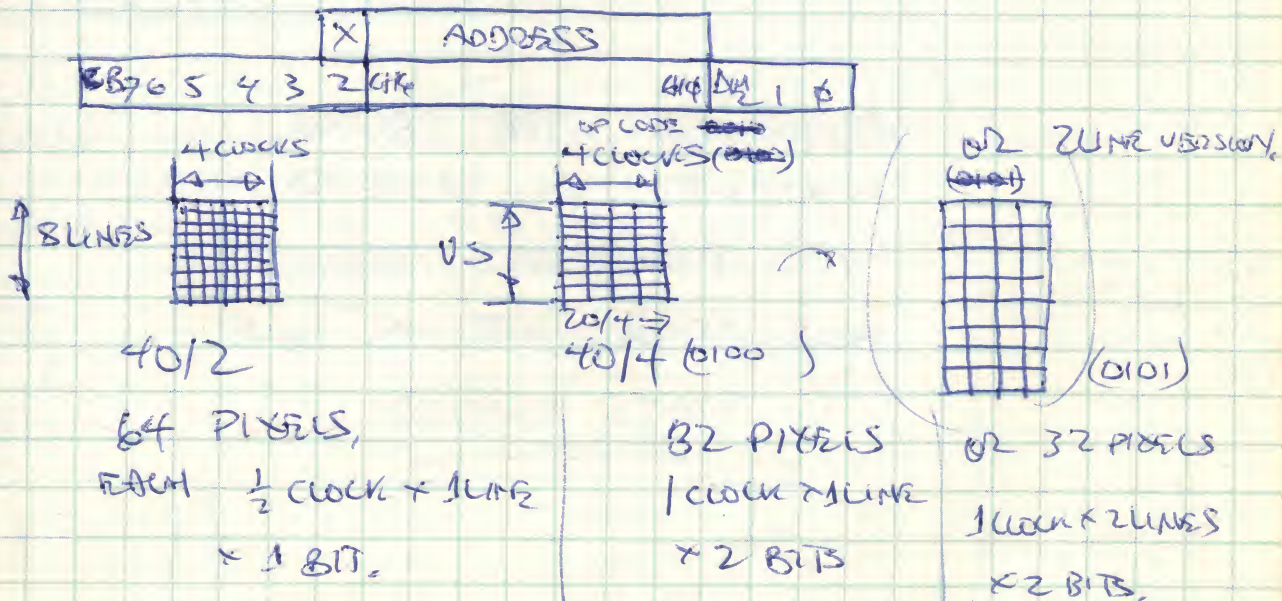 X ADDRESS
CB7 6 5 4 3 2 CH6 CH0 DM2 1 0
4 CLOCKS
8 LINES
40/2
64 PIXELS,
EACH 1/2 CLOCK × 1 LINE
× 1 BIT.
OP CODE
4 CLOCKS
VS
20/4 ⇒
40/4 (0100 )
32 PIXELS
1 CLOCK × 1 LINE
× 2 BITS
OR 2 LINE VERSION.
(0101)
(0101)
OR 32 PIXELS
1 CLOCK × 2 LINES
× 2 BITS.